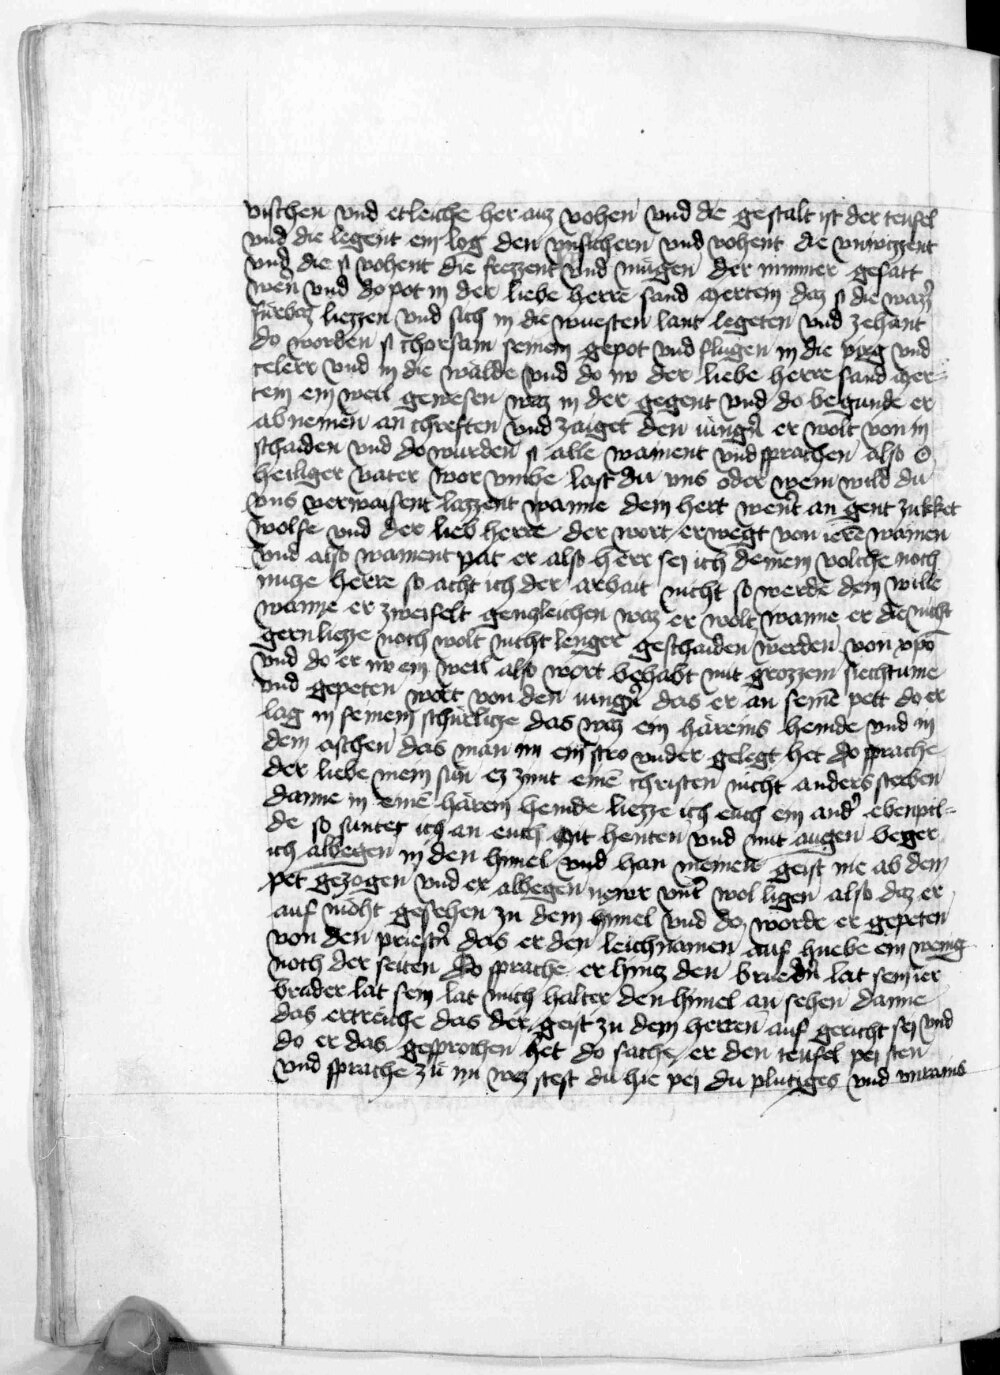 vischen vnd etleiche her auz vohen vnd die gestalt ist der teufel
vnd die legent ein log den vnsichern vnd vohent die vnwizzent
vnd die si vohent die frezzent vnd mugen der nimmer gesatt
wen vnd do pot in der liebe herre sand mertein daz si die wazz̄
furbaz liezzen vnd sich in die wuesten lant legeten vnd zehant
do worden si ghorsam seinem gepot vnd flugen in die perg vnd
telerr vnd in die walde vnd do nv der liebe herre sand mer-
tein ein weil gewesen waz in der gegent vnd do begunde er
ab nemen an chreften vnd zaiget den iungn̄ er wolt von in
schaiden vnd do wurden si alle wainent vnd sprachen also O
heiliger vater wor vmbe last du vns oder wem wild du
vns verwaisent lazzent wanne dem hert wert an gent zukket
wolfe vnd der lieb herre der wort erwegt von iren̄ wainen
vnd also wainent pat er also herr sei ich deinem volche noch
nutze herre so acht ich der arbait nicht so werde dein wille
wanne er zweifelt gengleichen waz er wolt wanne er die nicht
gern liezze noch wolt nicht lenger geschaiden werden von xpō
vnd do er nv ein weil also wort behabt mit grozzem siechtume
vnd gepeten wort von den iungn̄ das er an seinē pett do er
lag in seinem schurlitze das waz ein häreins hemde vnd in
dem aschen das man im ein stro vnder gelegt het do sprache
der liebe mein sun ez zimt einē christen nicht anders sterben
danne in einē härein hemde liezze ich euch ein and̄ ebenpil-
de so suntet ich an euch mit henten vnd mit augen beger
ich albegen in den himel vnd han meinen geist nie ab dem
pet gezogen vnd er albegen newr wolt ligen also daz er
auf möht gesehen zu dem himel vnd do worde er gepeten
von den priestn̄ das er den leichnamen auf huebe ein wenig
noch der seiten Do sprache er hintz den bruedn̄ lat sein ier
bruder lat sein lat mich halter den himel an sehen danne
das ertreiche das der geist zu dem herren auf gericht sei vnd
do er das gesprochen het do sache er den teufel pei sten
vnd sprache zu im waz stest du hie pei du plutiges vnd vnrains